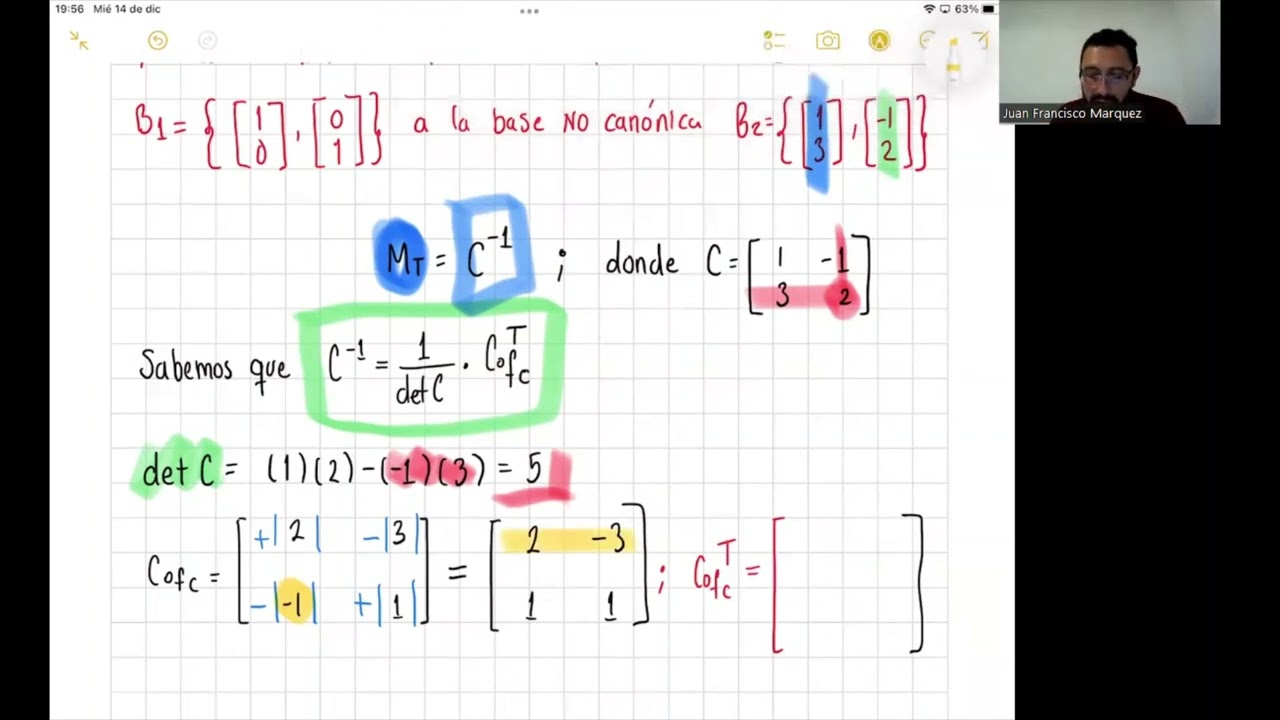 19:56 Mié 14 de dic
63%
Juan Francisco Marquez
B1 = { [1 0], [0 1] } a la base NO canónica B2 = { [1 3], [-1 2] }
MT = C^-1 ; donde C = [1 -1
3 2]
Sabemos que C^-1 = 1/det C · Cof_C^T
det C = (1)(2) - (-1)(3) = 5
Cof_C = [+|2| -|3| = [2 -3 ; Cof_C^T = [ ]
-|-1| +|1|] 1 1]